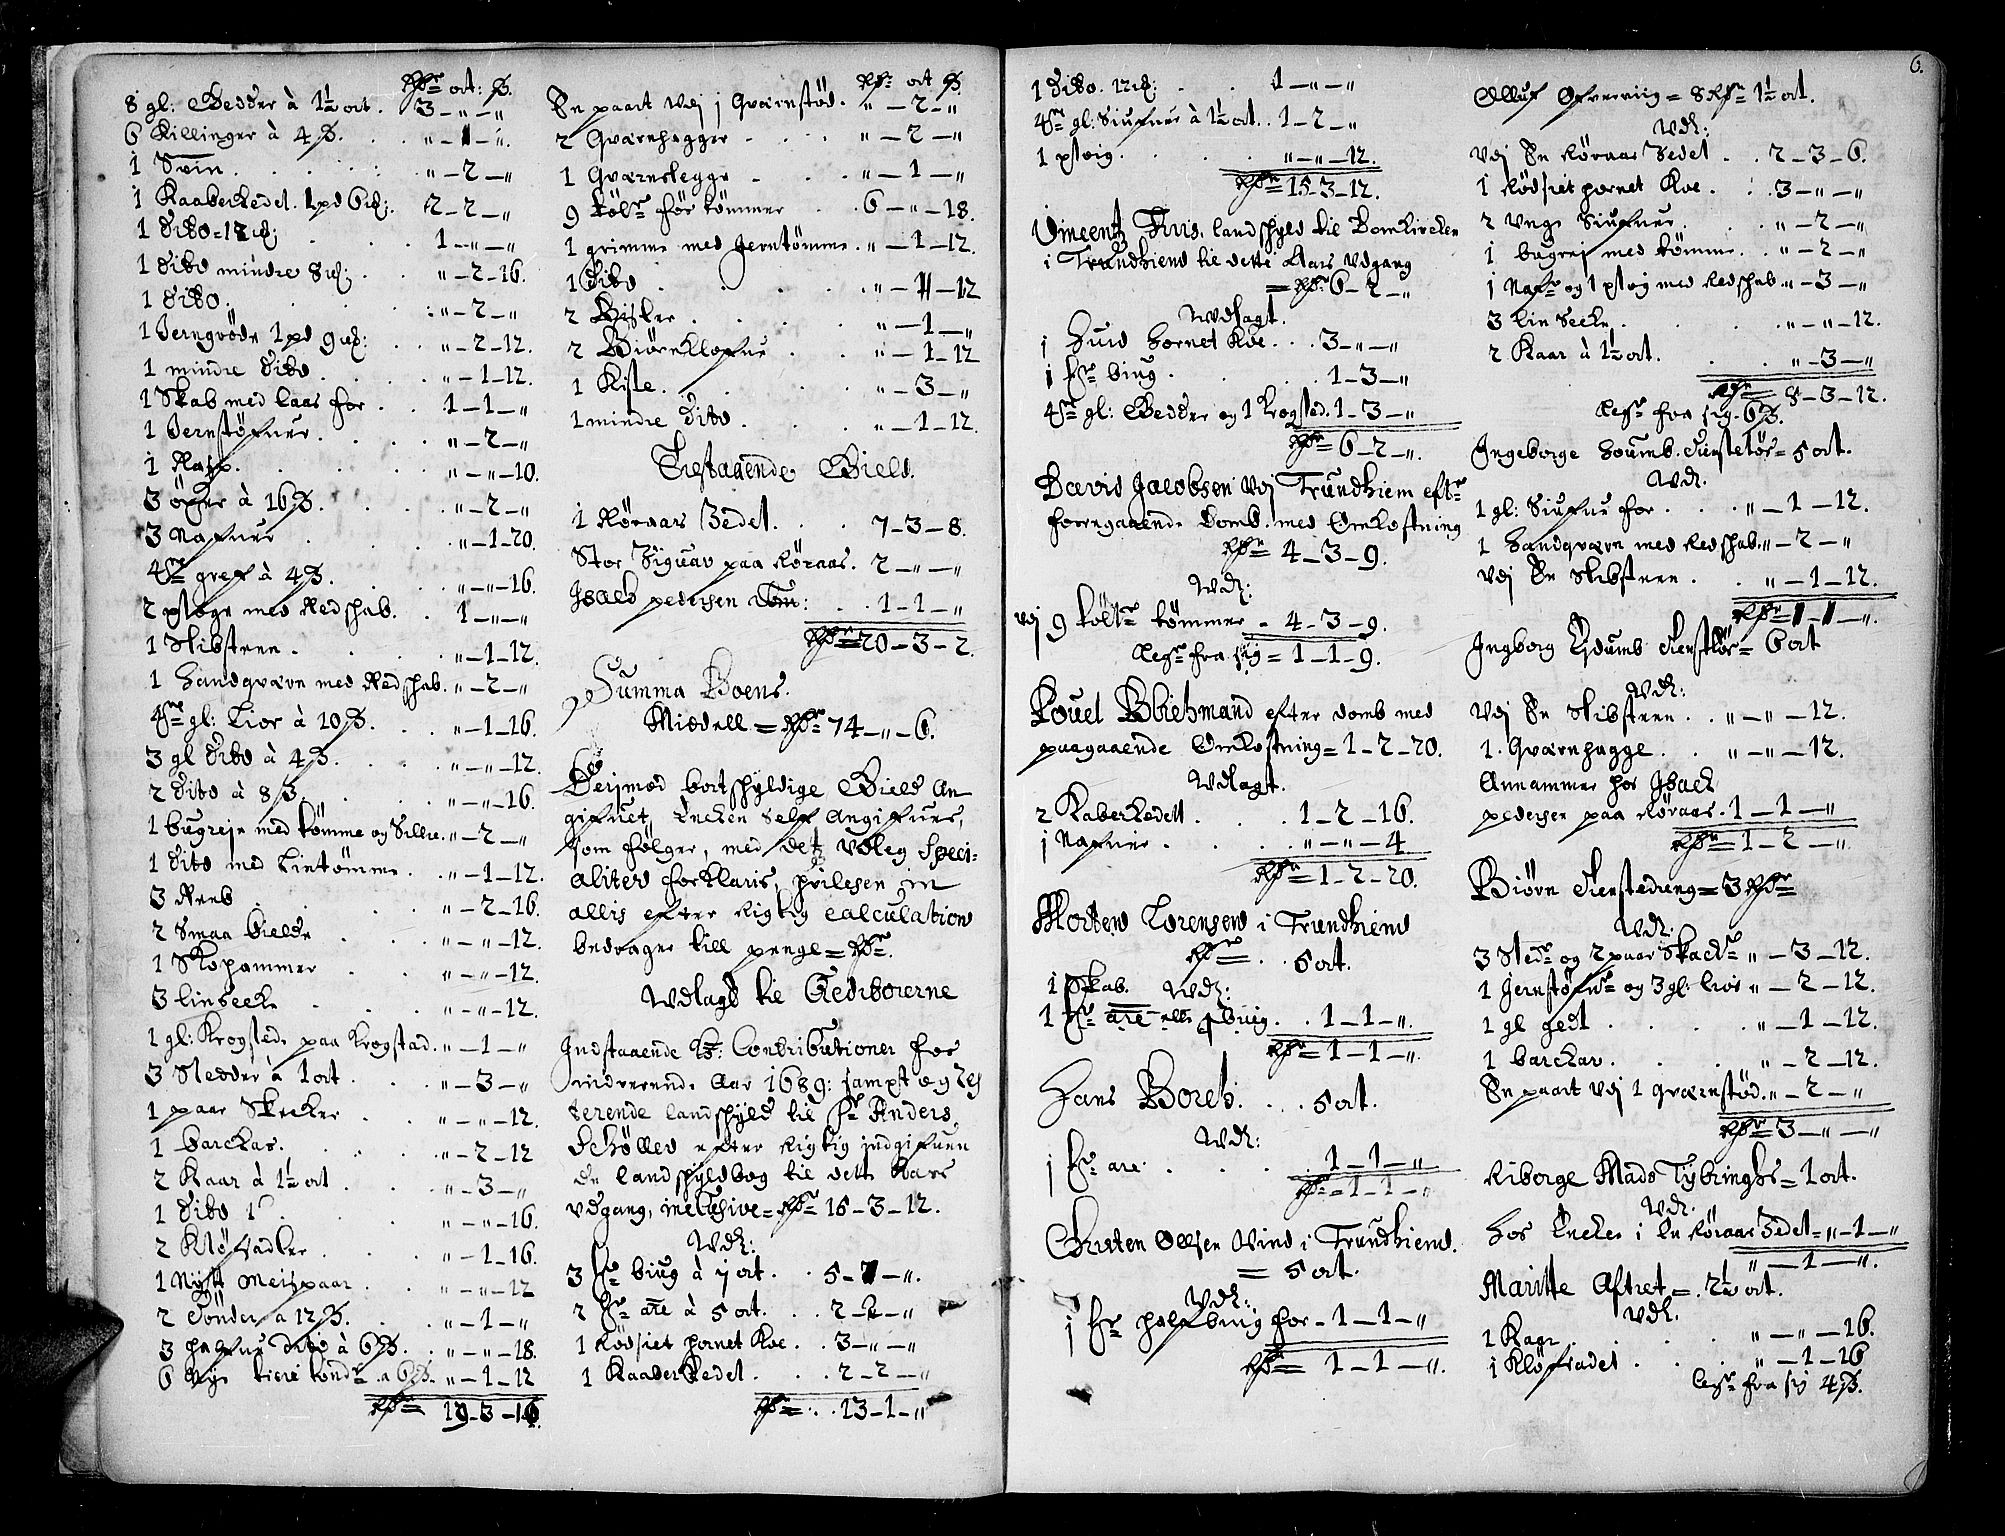 Rdr ort: ß.
8 gl: Bedder à 1½ ort. 3 — „ — „
6 Killinger à 4 ß. . . „ — 1 — „.
1 Svin . . . . „ — 2 — „
1 Kaaberkedel. 1 pd 6 : 2 — 2 — „
1 dito = 12 : . . 1 — „ — „
1 dito mindre 8 : . . „ — 2 — 16.
1 dito. . . . „ — 2 — „
1 Jerngrÿde 1 pd 9 : . . „ — 2 — 12.
1 mindre dito . . . „ — 1 — 12.
1 Skab med laas for . . 1 — 1 — „
1 Jernstøfuer . . . „ — 2 — „
1 Rasp. . . . „ — „ — 10.
3 øxer à 16 ß. . . . „ — 2 — „
3 Nafuer . . . „ — 1 — 20.
4re gref à 4 ß. . . „ — „ — 16.
2 ploge med Redschab. . 1 — „ — „
1 Slibsteen . . . „ — 1 — 12.
1 Handqværn med Redschab. „ — 2 — „
4re gl: Lior à 10 ß. . . „ — 1 — 16.
3 gl dito à 4 ß. . . „ — „ — 12.
2 dito à 8 ß. . . „ — „ — 16.
1 bugreje med tømme og Sille. „ — 2 — „
1 dito med Lintømme . . „ — 1 — 12.
3 Reeb . . . „ — 2 — 16.
2 Smaa bielder . . „ — „ — 12.
1 Slohammer . . „ — „ — 12.
3 linsecke . . „ — „ — 12.
1 gl: Krogsted paa Krogstad. „ — 1 — „
3 Sledder à 1 ort . . „ — 3 — „
1 paar Skecker . . „ — „ — 12.
1 barckar. . . . „ — 2 — 12
2 Kaar à 1½ ort . . „ — 3 — „
1 dito 1 . . . „ — „ — 16.
2 Kløfsadler . . . „ — 1 — 16.
1 Nÿtt meispaar . . „ — „ — 12
2 Tønder à 12 ß. . . „ — 1 — „
3 halfue dito à 6 ß. . „ — „ — 18.
6 Nye tiere tønder à 6 ß. „ — 1 — 12
Rdr = 19 — 3 — 16.

Rdr ort ß.
En paart udj 1 Qværnstød. „ — 2 — „
2 Qværnhagger . . „ — 2 — „
1 Qværnslegge . . „ — 1 — „
9 tølter før tømmer . 6 — „ — 18.
1 grimme med Jerntømme. „ — 1 — 12.
1 dito . . . „ — 1 — 12
2 Bisler . . . „ — 1 — „
2 Biørnklofue . . „ — 1 — 12
1 Kiste . . . „ — 3 — „
1 mindre dito . . . „ — 1 — 12.
Tilstaaende Gield.
1 Røraas Zedel. . . 7 — 3 — 8.
Stor Siguar paa Røraas. 2 — „ — „
Isack pedersen : . 1 — 1 — „
Rdr = 20 — 3 — 2.
Summa Boens
Middell = Rdr 74 — „ — 6.
Derimod bortschyldige Gield An-
gifuet, Encken Self Angifuer,
som følger, med det udleg Speci-
aliter forklaris, hvilcken in
allis efter Rigtig Calculation
bedrager till penge = Rdr.
Udlagd til Creditorerne
Indstaaende Contributioner for
indverende Aar 1689: sampt og Res
terende landschyld til Sr Anders
Schøller efter Rigtig indgifuen
de landschyldbog til dette Aars
udgang, inclusive = Rdr 15 — 3 — 12.
Udl:
3 tr biug à 7 ort. . 5 — 1 — „.
2 tr are à 5 ort. . . 2 — 2 — „
1 Rødsiet hornet Koe. . 3 — „ — „
1 Kaaberkedel. . . 2 — 2 — „
Rdr = . . 13 — 1 — „

6.
1 dito. 12 : . . 1 — „ — „
4re gl: Siufuer à 1½ ort. . 1 — 2 — „
1 ploig. . . . „ — „ — 12.
Rdr = 15 — 3 — 12.
Vincentz Huis, landschyld til Domkircken
i Trundhiem til dette Aars udgang
= Rdr 6 — 2 — „
Udlagt.
1 Huid hornet Koe. . . 3 — „ — „
1 tr biug. . . 1 — 3 — „
4re gl: Bedder og 1 Krogsted. 1 — 3 — „
Rdr = 6 — 2 — „.
David Jacobsen udj Trundhiem efter
foregaaende Domb. med Omkostning
Rdr = 4 — 3 — 9.
Udl:
udj 9 tølter tømmer . 4 — 3 — 9.
legr fra sig = 1 — 1 — 9.
Pouel Bliehmand efter domb med
paagaaende Omkostning = 1 — 2 — 20.
Udlagt.
2 Kaberkedell . . . 1 — 2 — 16.
1 Nafuer . . . „ — „ — 4
Rdr = 1 — 2 — 20.
Morten Lorensen i Trundhiem
Rdr = . . 5 ort.
1 Skab. Udl:
1 tr are biug. . . 1 — 1 — „.
Rdr = 1 — 1 — „.
Hans Borch. . . . 5 ort.
Udl:
1 tr are. . . . 1 — 1 — „
Rdr = 1 — 1 — „
Christen Olsen Vind i Trundhiem.
= 5 ort.
Udl:
1 tr half biug for . 1 — 1 — „
Rdr = 1 — 1 — „.

Olluf = 8 Rdr 1½ ort.
Udl:
udj En Røraas Sedel . . 2 — 3 — 6.
1 Rødsiet hornet Koe . . 3 — „ — „
2 unge Siufuer . . „ — 2 — „
1 bugrej med tømme . . „ — 2 — „
1 Nafr og 1 ploig med Redschab „ — 3 — „
3 linsecke . . . „ — „ — 12.
2 Kaar à 1½ ort. . . „ — 3 — „
Rdr = 8 — 3 — 12.
legr fra sig. 6 ß.
Ingeborge tienstetøs = 5 ort.
Udl.
1 gl: Siufue for . . . „ — 1 — 12.
1 Handqværn med Redschab „ — 2 — „
udj En Slibsteen . . „ — 1 — 12.
Rdr = 1 — 1 — „.
Ingborg tienstetøs = 6 ort
Udl:
udj En Slibsteen . . „ — „ — 12.
1. Qværnhagge . . „ — „ — 12.
Annammer hos Isack
pedersen paa Røraas. 1 — 1 — „
Rdr = 1 — 2 — „.
Biørn tienstedreng = 3 Rdr
Udl:
3 Sledr og 2 paar Skackr „ — 3 — 12.
1 Jernstør og 3 gl: lior „ — 2 — 12.
1 gl gedt . . . „ — 1 — 12.
1 barckar . . . „ — 2 — 12.
En paart udj 1 Qværnstød. „ — 2 — „
Rdr = 3 — „ — „
Riborge Mads Tybringhs = 1 ort.
Udl.
hos Encken i En Røraas Zedel = „ — 1 — „
„ — 1 — „.
Maritte Aftret = 2½ ort.
Udl.
1 Kagr . . . „ — „ — 16.
1 Kløfsadel . . . „ — 1 — 16
legr fra sig 4 ß.